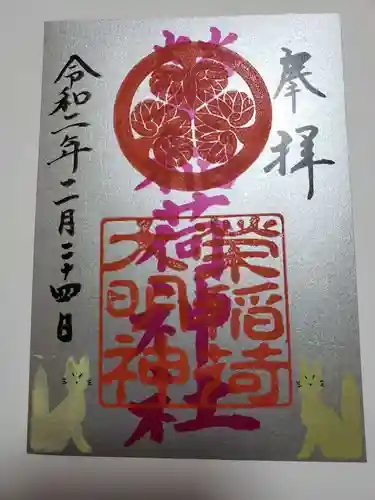 奉拝
榮稲荷神社
栄稲荷
大明神
令和二年二月二十四日